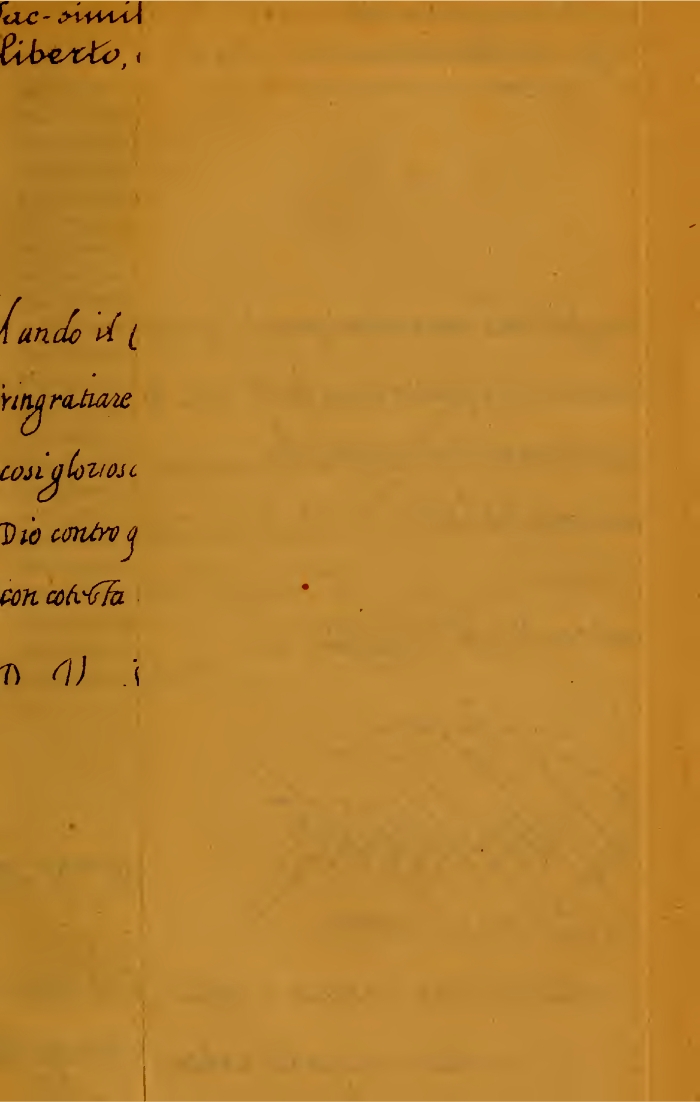 fac-simil
liberto,
ando il
ringratiare
così glorios
Dio contro q
con